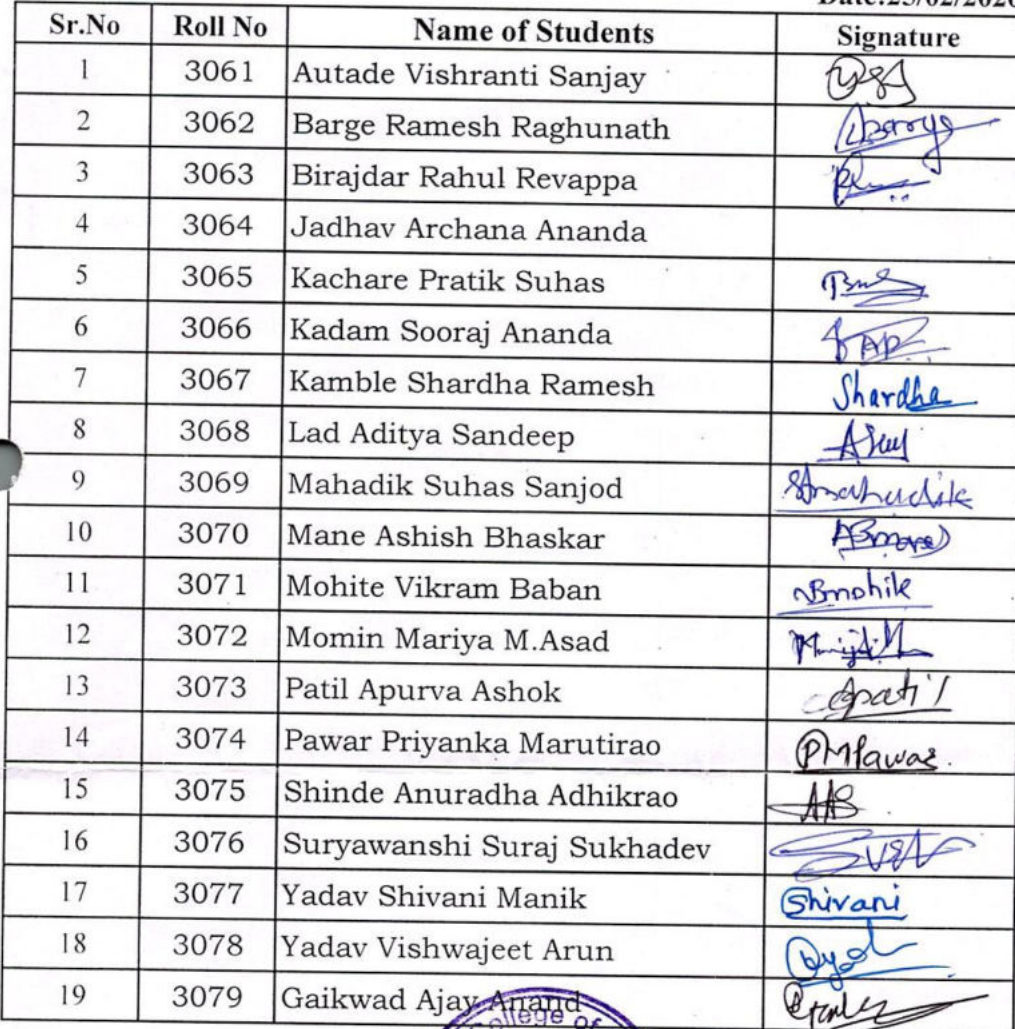 Date:25/02/2020
Sr.No Roll No Name of Students Signature
1 3061 Autade Vishranti Sanjay
2 3062 Barge Ramesh Raghunath
3 3063 Birajdar Rahul Revappa
4 3064 Jadhav Archana Ananda
5 3065 Kachare Pratik Suhas
6 3066 Kadam Sooraj Ananda
7 3067 Kamble Shardha Ramesh Shardha
8 3068 Lad Aditya Sandeep
9 3069 Mahadik Suhas Sanjod Smahadik
10 3070 Mane Ashish Bhaskar
11 3071 Mohite Vikram Baban
12 3072 Momin Mariya M.Asad
13 3073 Patil Apurva Ashok Apatil
14 3074 Pawar Priyanka Marutirao PMPawar.
15 3075 Shinde Anuradha Adhikrao AAS
16 3076 Suryawanshi Suraj Sukhadev
17 3077 Yadav Shivani Manik Shivani
18 3078 Yadav Vishwajeet Arun
19 3079 Gaikwad Ajay Anand
College of